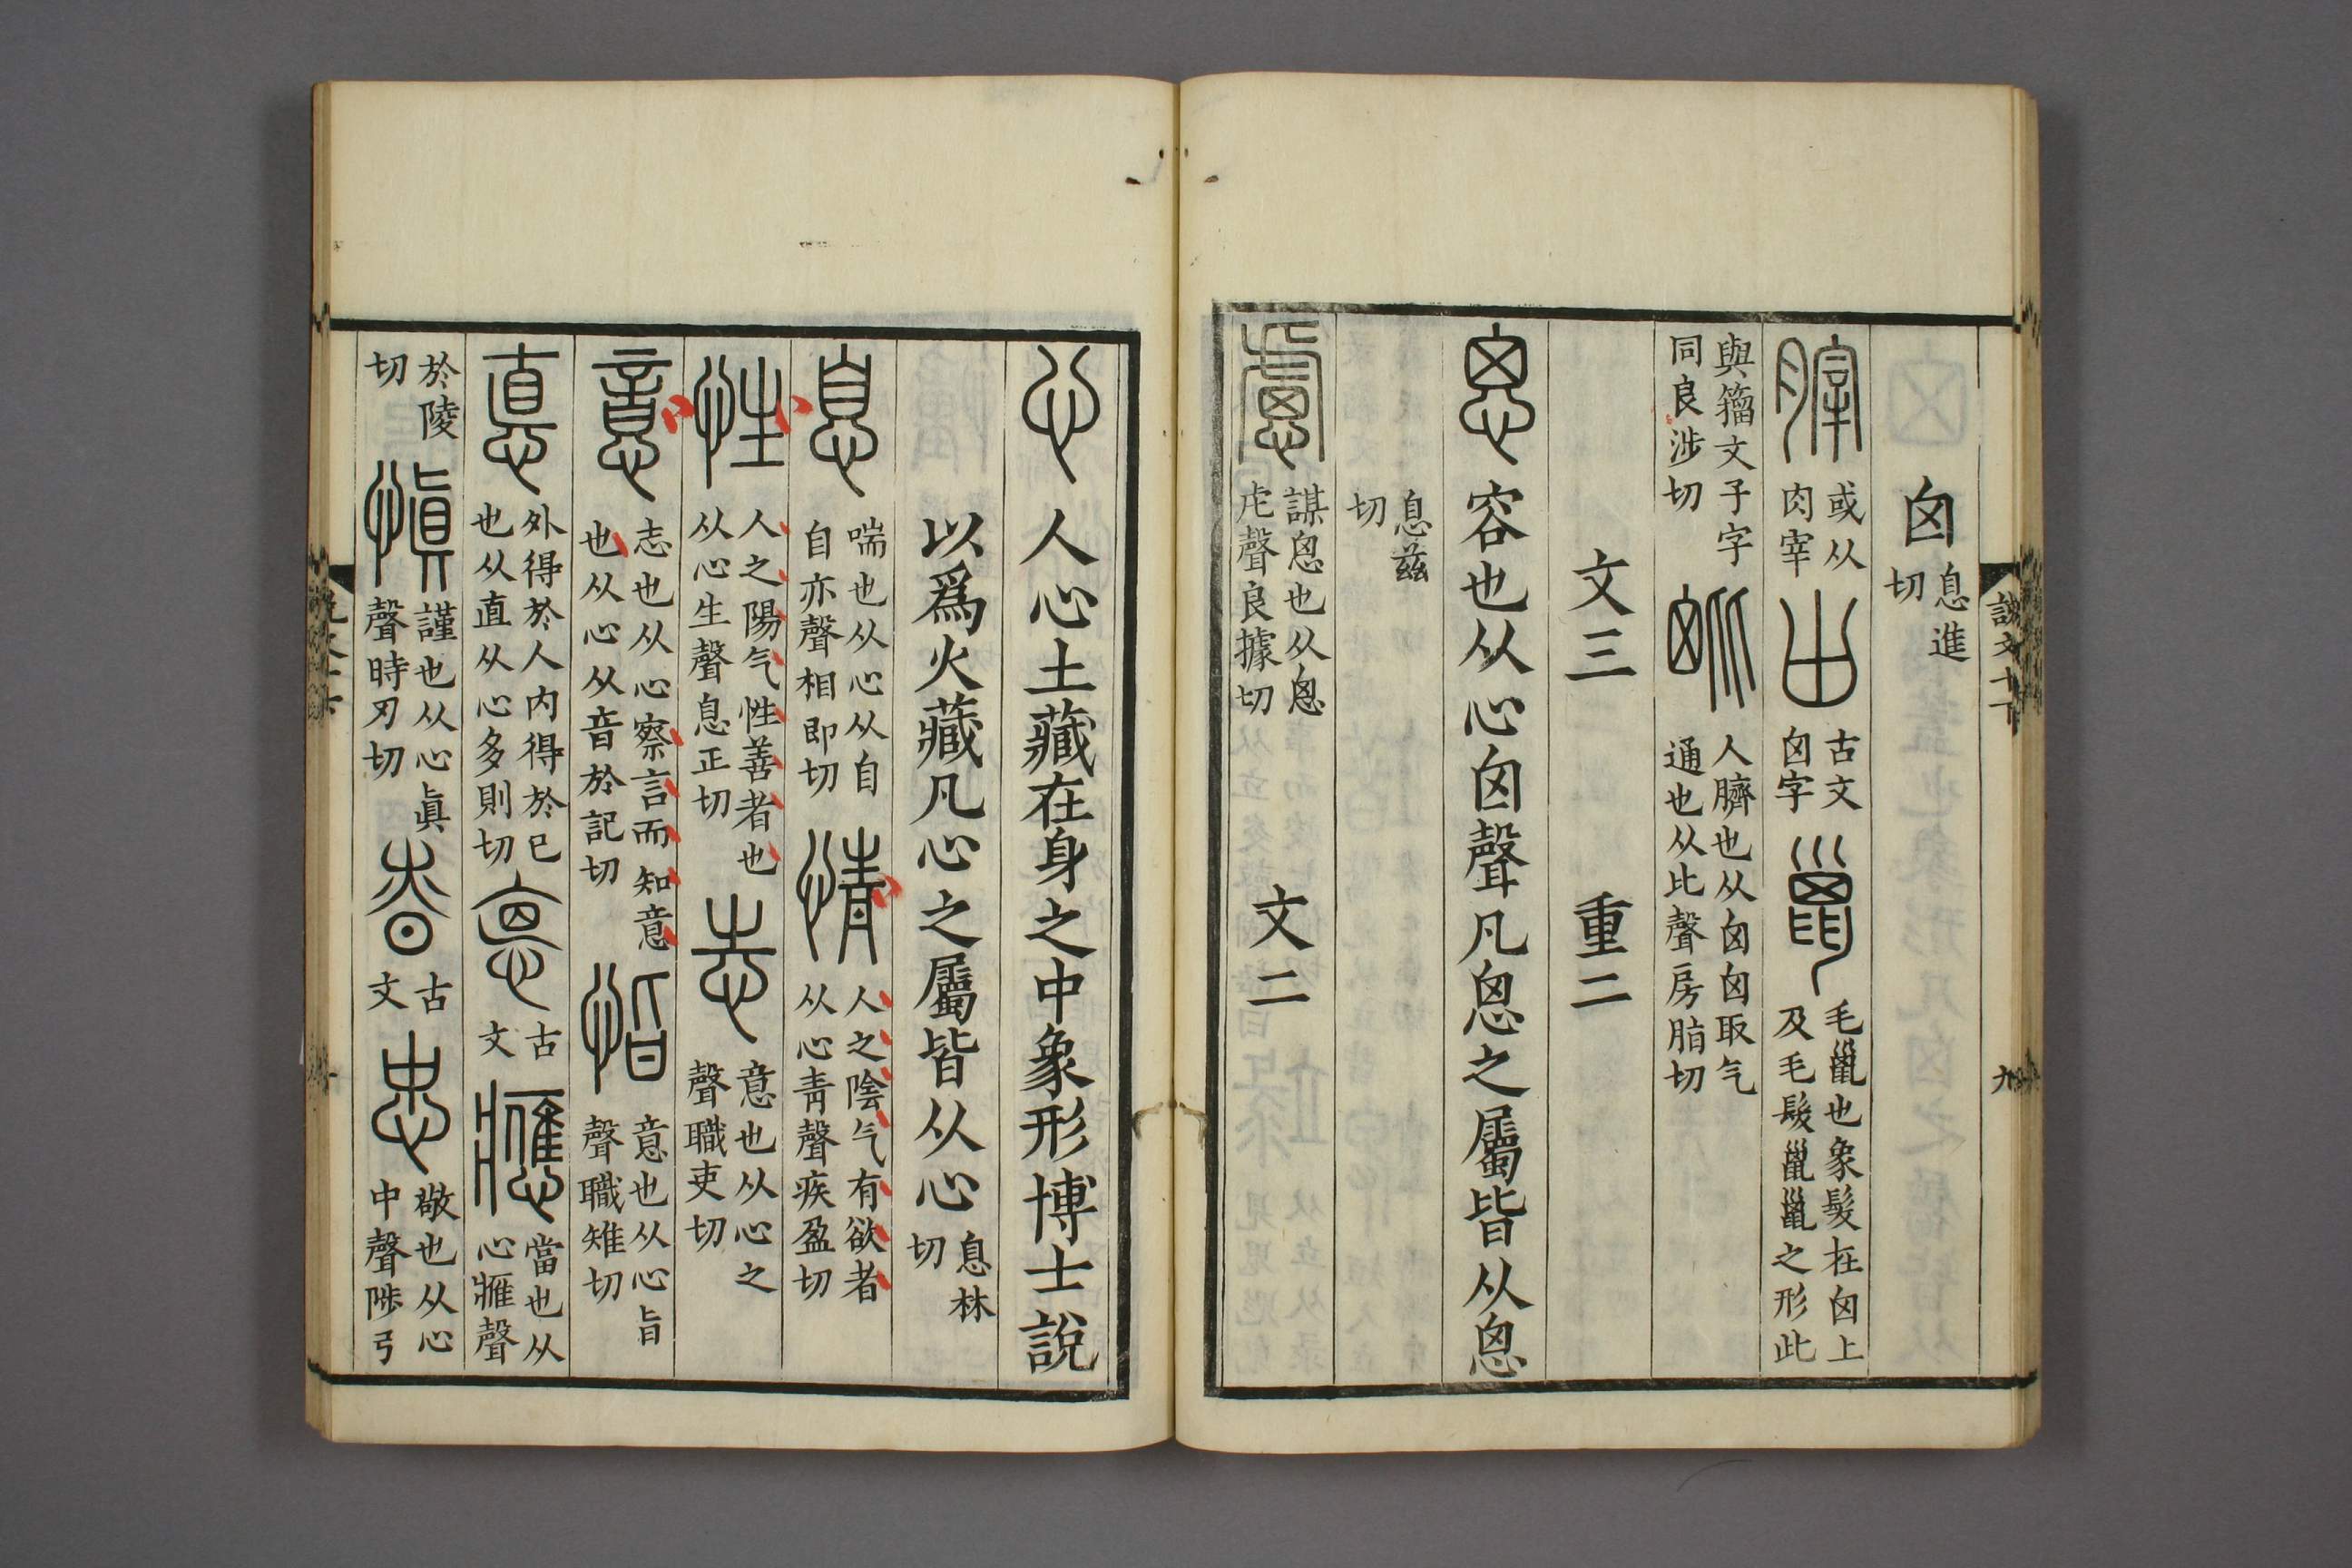 囟息進切
膟或从肉宰 𠙷古文囟字 巤毛巤也象髮在囟上及毛髮巤巤之形此
與籀文子字同良涉切 𣬉人臍也从囟囟取气通也从比聲房脂切
文三 重二
恖容也从心囟聲凡恖之屬皆从恖
息茲切
慮謀恖也从恖虍聲良據切 文二
說文十下 九
心人心土藏在身之中象形博士說
以爲火藏凡心之屬皆从心息林切
息喘也从心从自自亦聲相即切 情人之陰气有欲者从心靑聲疾盈切
性人之陽气性善者也从心生聲息正切 志意也从心之聲職吏切
意志也从心察言而知意也从心从音於記切 恉意也从心旨聲職雉切
悳外得於人内得於已也从直从心多則切 𢛳古文 應當也从心䧹聲
於陵切 愼謹也从心眞聲時刃切 昚古文 忠敬也从心中聲陟弓